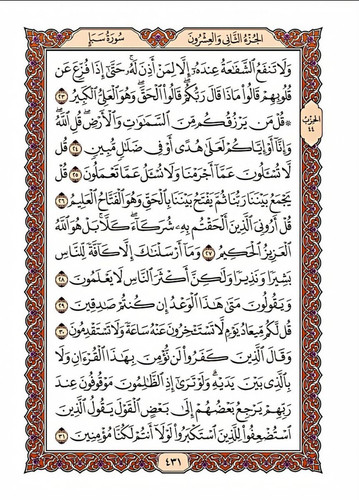 الجزء الثاني والعشرون
سورة سبإ
ولا تنفع الشفاعة عنده إلا لمن أذن له حتى إذا فزع عن
قلوبهم قالوا ماذا قال ربكم قالوا الحق وهو العلي الكبير ٢٣
۞ قل من يرزقكم من السماوات والأرض قل الله
وإنا أو إياكم لعلى هدى أو في ضلال مبين ٢٤ قل
لا تسألون عما أجرمنا ولا نسأل عما تعملون ٢٥ قل
يجمع بيننا ربنا ثم يفتح بيننا بالحق وهو الفتاح العليم ٢٦
قل أروني الذين ألحقتم به شركاء كلا بل هو الله
العزيز الحكيم ٢٧ وما أرسلناك إلا كافة للناس
بشيرا ونذيرا ولكن أكثر الناس لا يعلمون ٢٨
ويقولون متى هذا الوعد إن كنتم صادقين ٢٩
قل لكم ميعاد يوم لا تستأخرون عنه ساعة ولا تستقدمون ٣٠
وقال الذين كفروا لن نؤمن بهذا القرءان ولا
بالذي بين يديه ولو ترى إذ الظالمون موقوفون عند
ربهم يرجع بعضهم إلى بعض القول يقول الذين
استضعفوا للذين استكبروا لولا أنتم لكنا مؤمنين ٣١
الحزب
٤٤
٤٣١